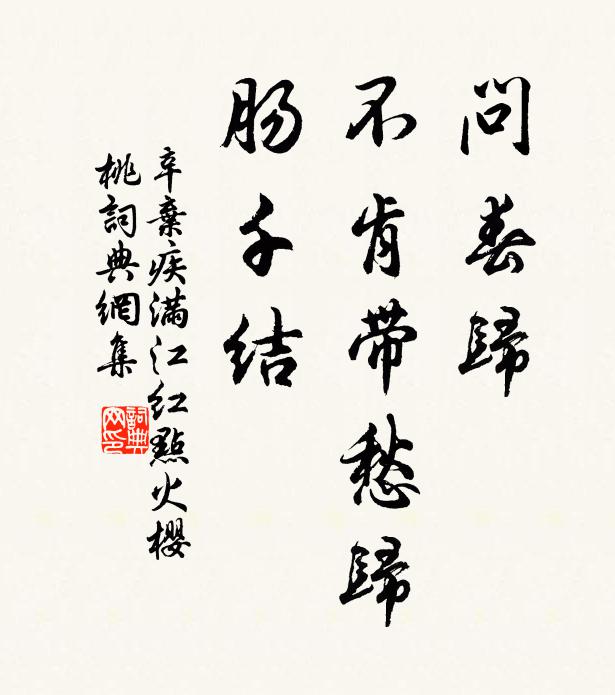 問春歸
不肯帶愁歸
腸千結
辛棄疾滿江紅點火櫻
桃詞典網集
詞典网印